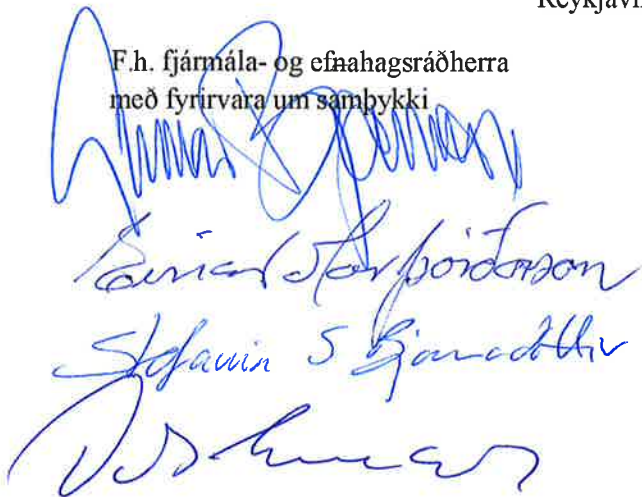 Reykjaví
F.h. fjármála- og efnahagsráðherra
með fyrirvara um samþykki
Gunnar Björnsson
Einar Mar Þórðarson
Stefanía S Bjarnadóttir